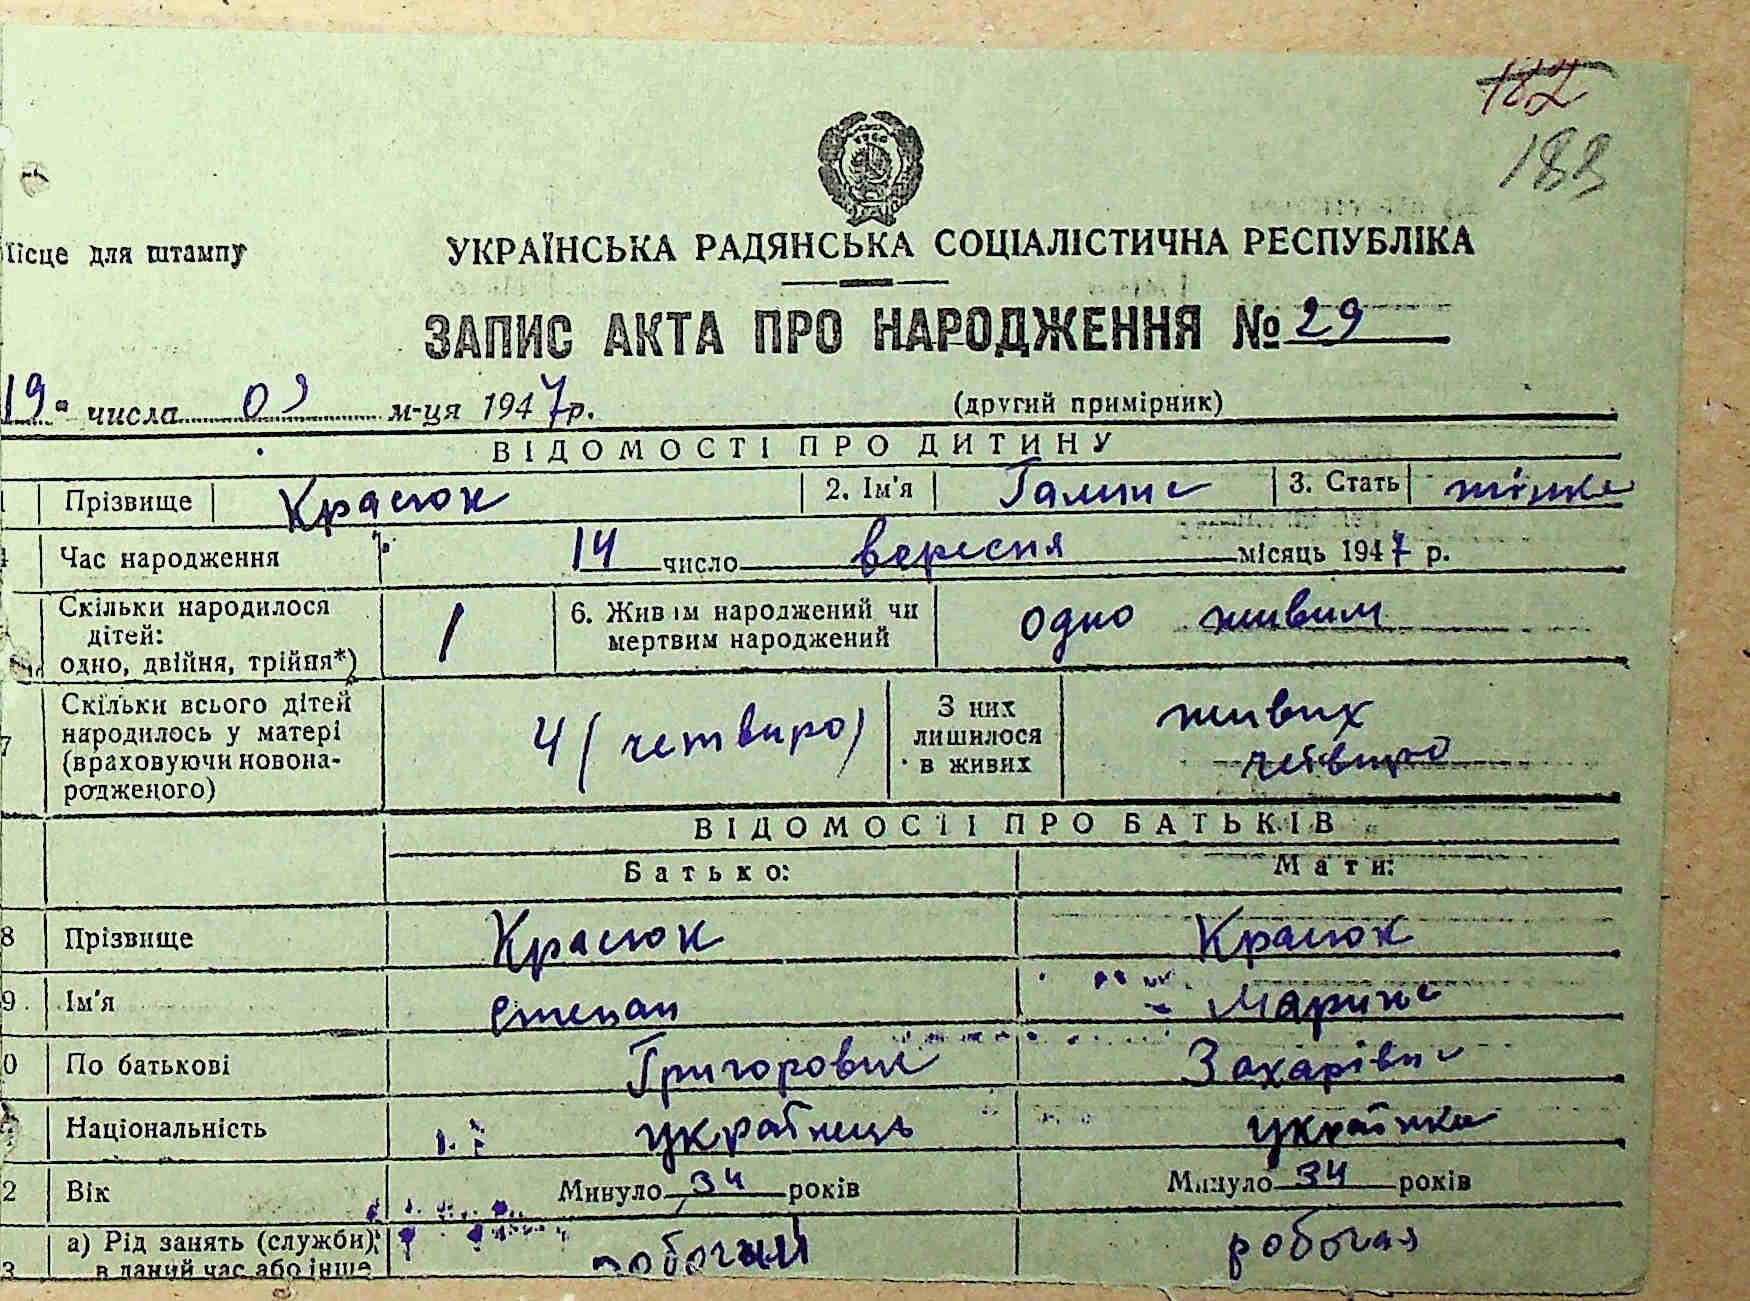 182
183
Місце для штампу
УКРАЇНСЬКА РАДЯНСЬКА СОЦІАЛІСТИЧНА РЕСПУБЛІКА
ЗАПИС АКТА ПРО НАРОДЖЕННЯ № 29
19 числа 09 м-ця 1947 р. (другий примірник)
ВІДОМОСТІ ПРО ДИТИНУ
Прізвище Красюк 2. Ім'я Галина 3. Стать жінка
Час народження 14 число вересня місяць 1947 р.
Скільки народилося дітей: одно, двійня, трійня*) 1 6. Живім народжений чи мертвим народжений одно живим
7 Скільки всього дітей народилось у матері (враховуючи новонародженого) 4 (четвиро) З них лишилося в живих живих четвиро
ВІДОМОСТІ ПРО БАТЬКІВ
Батько: Мати:
8 Прізвище Красюк Красюк
9. Ім'я Степан Марина
0 По батькові Григорович Захарівна
Національність українець українка
2 Вік Минуло 34 років Минуло 34 років
3 а) Рід занять (служби) в даний час або інше робочий робочая